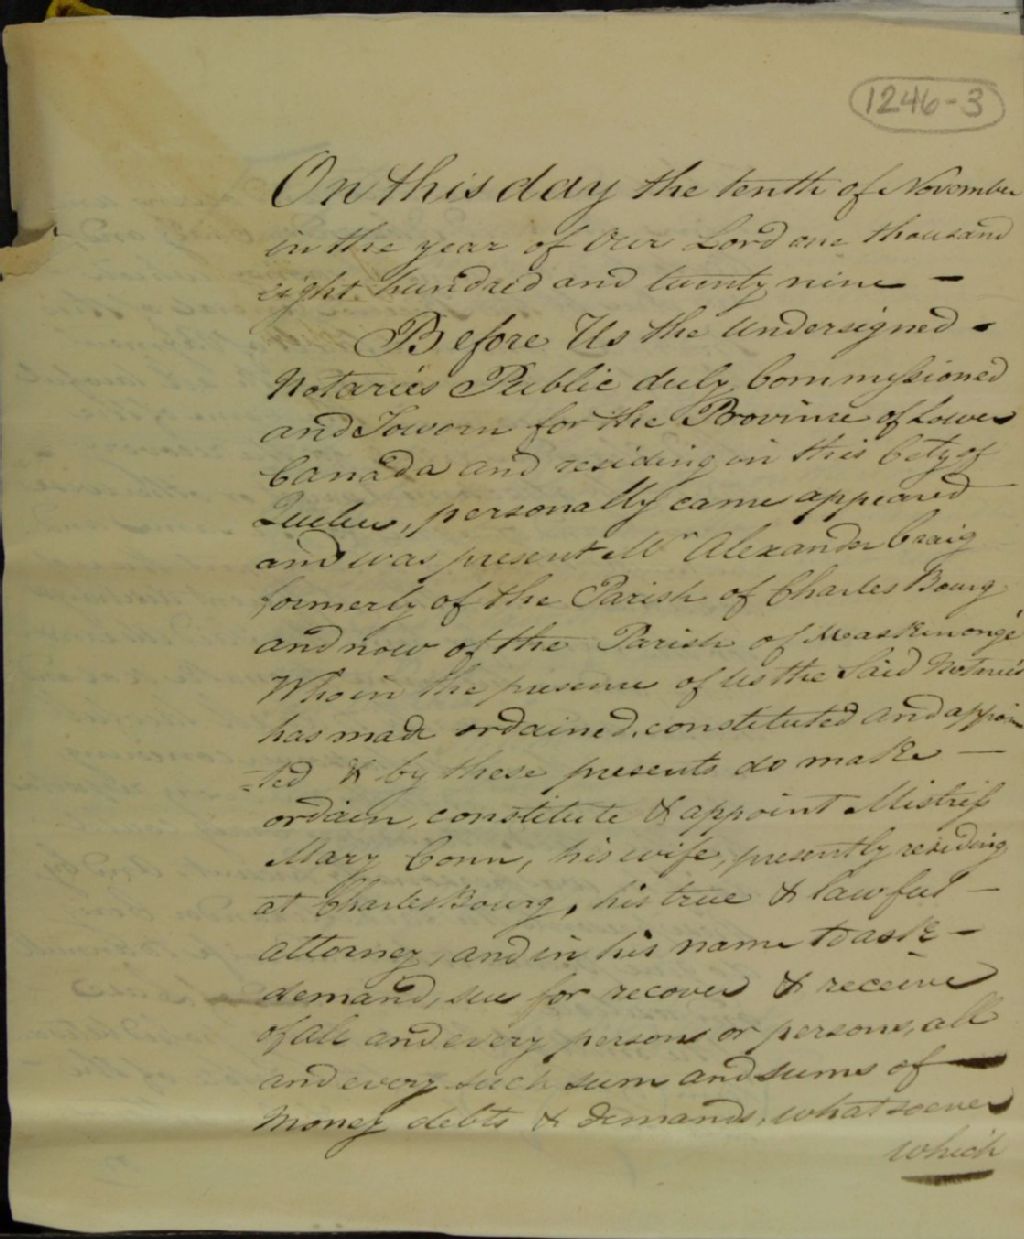 1246-3
On this day the tenth of November
in the year of Our Lord one thousand
eight hundred and twenty nine -
Before Us the Undersigned -
Notaries Public duly Commissioned
and Sworn for the Province of Lower
Canada and residing in this City of
Quebec, personally came appeared
and was present Mr Alexander Craig
formerly of the Parish of Charles Bourg
and now of the Parish of Maskinongé
Who in the presence of Us the Said Notaries
has made ordained, constituted and appoin
-ted & by these presents do make -
ordain, constitute & appoint Mistriss
Mary Conn, his wife, presently residing
at CharlesBourg, his true & lawful -
attorney, and in his name to ask -
demand, sue for recover & receive
of all and every person or persons, all
and every such sum and sums of -
Money debts & demands, whatsoever
which